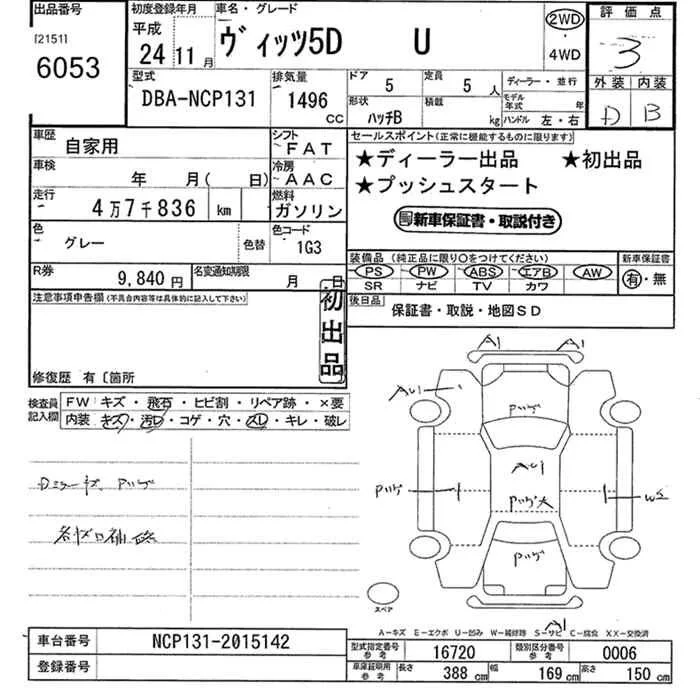 出品番号
[2151]
6053
初度登録年月
平成
24年 11月
車名・グレード
ヴィッツ5D U
2WD
・
4WD
評価点
3
外装 内装
D B
型式
DBA-NCP131
排気量
1496
CC
ドア
5
定員
5人
形状
ハッチB
積載
kg
ディーラー・並行
モデル年式 年
ハンドル 左・右
車歴
自家用
シフト
FAT
車検
年 月( 日)
冷房
AAC
走行
4万7千836 km
燃料
ガソリン
色
グレー
色替
色コード
1G3
R券
9,840円
名変通知期限
月 日
セールスポイント(正常に機能するものに限ります)
★ディーラー出品 ★初出品
★プッシュスタート
新車保証書・取説付き
装備品 (純正品に限り○をつけてください)
PS PW ABS エアB AW
SR ナビ TV カワ
新車保証書
有・無
後日品
保証書・取説・地図SD
注意事項申告欄(不具合内容等は具体的に記入して下さい)
初出品
修復歴 有〔箇所
検査員記入欄
FW キズ・飛石・ヒビ割・リペア跡・×要
内装 キズ・汚レ・コゲ・穴・スレ・キレ・破レ
Dミラーキズ、Pハゲ
A1 A1
AU1
Pハゲ
AU1
Pハゲ
Pハゲ大
WS
Pハゲ
スペア
A1
A-キズ E-エクボ U-凹み W-補修跡 S-サビ C-腐食 XX-交換済
車台番号
NCP131-2015142
登録番号
型式指定番号
参考
16720
類別区分番号
参考
0006
車庫証明用
参考
長さ
388 cm
幅
169 cm
高さ
150 cm